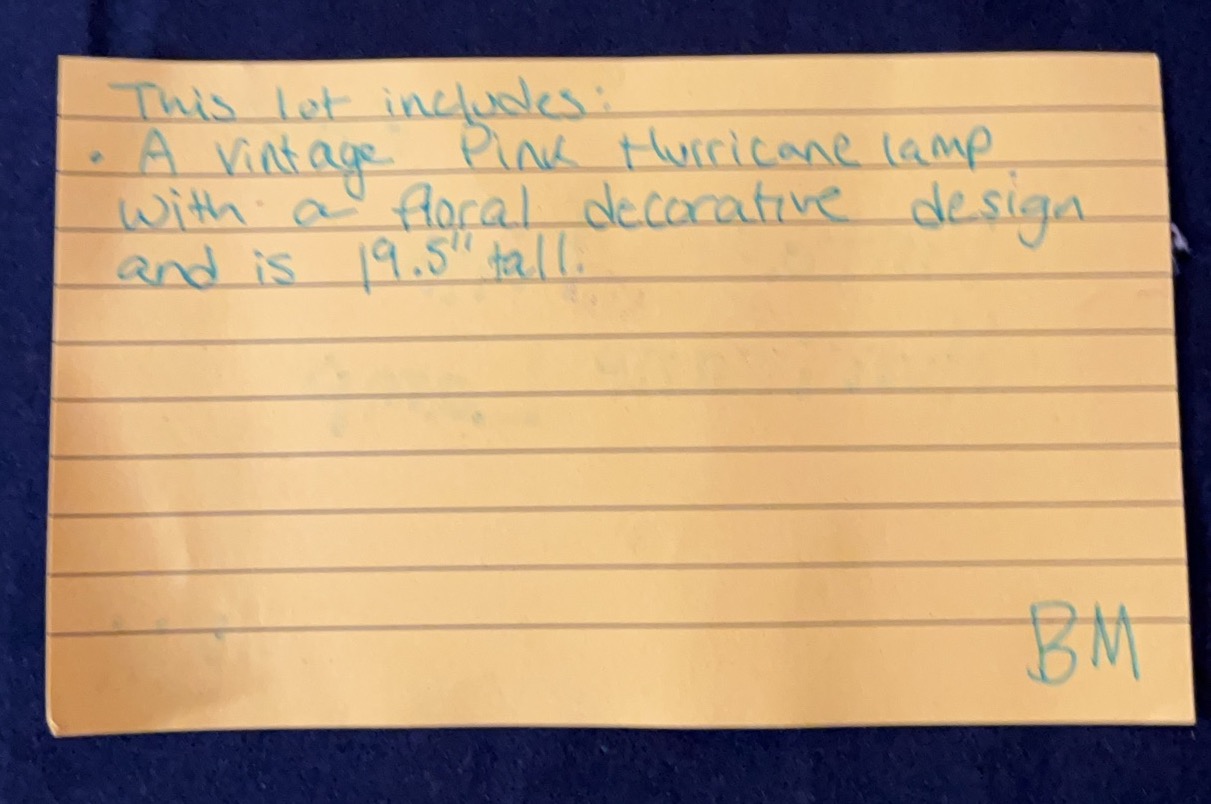 This lot includes:
• A vintage Pink Hurricane lamp
with a floral decorative design
and is 19.5" tall.
BM